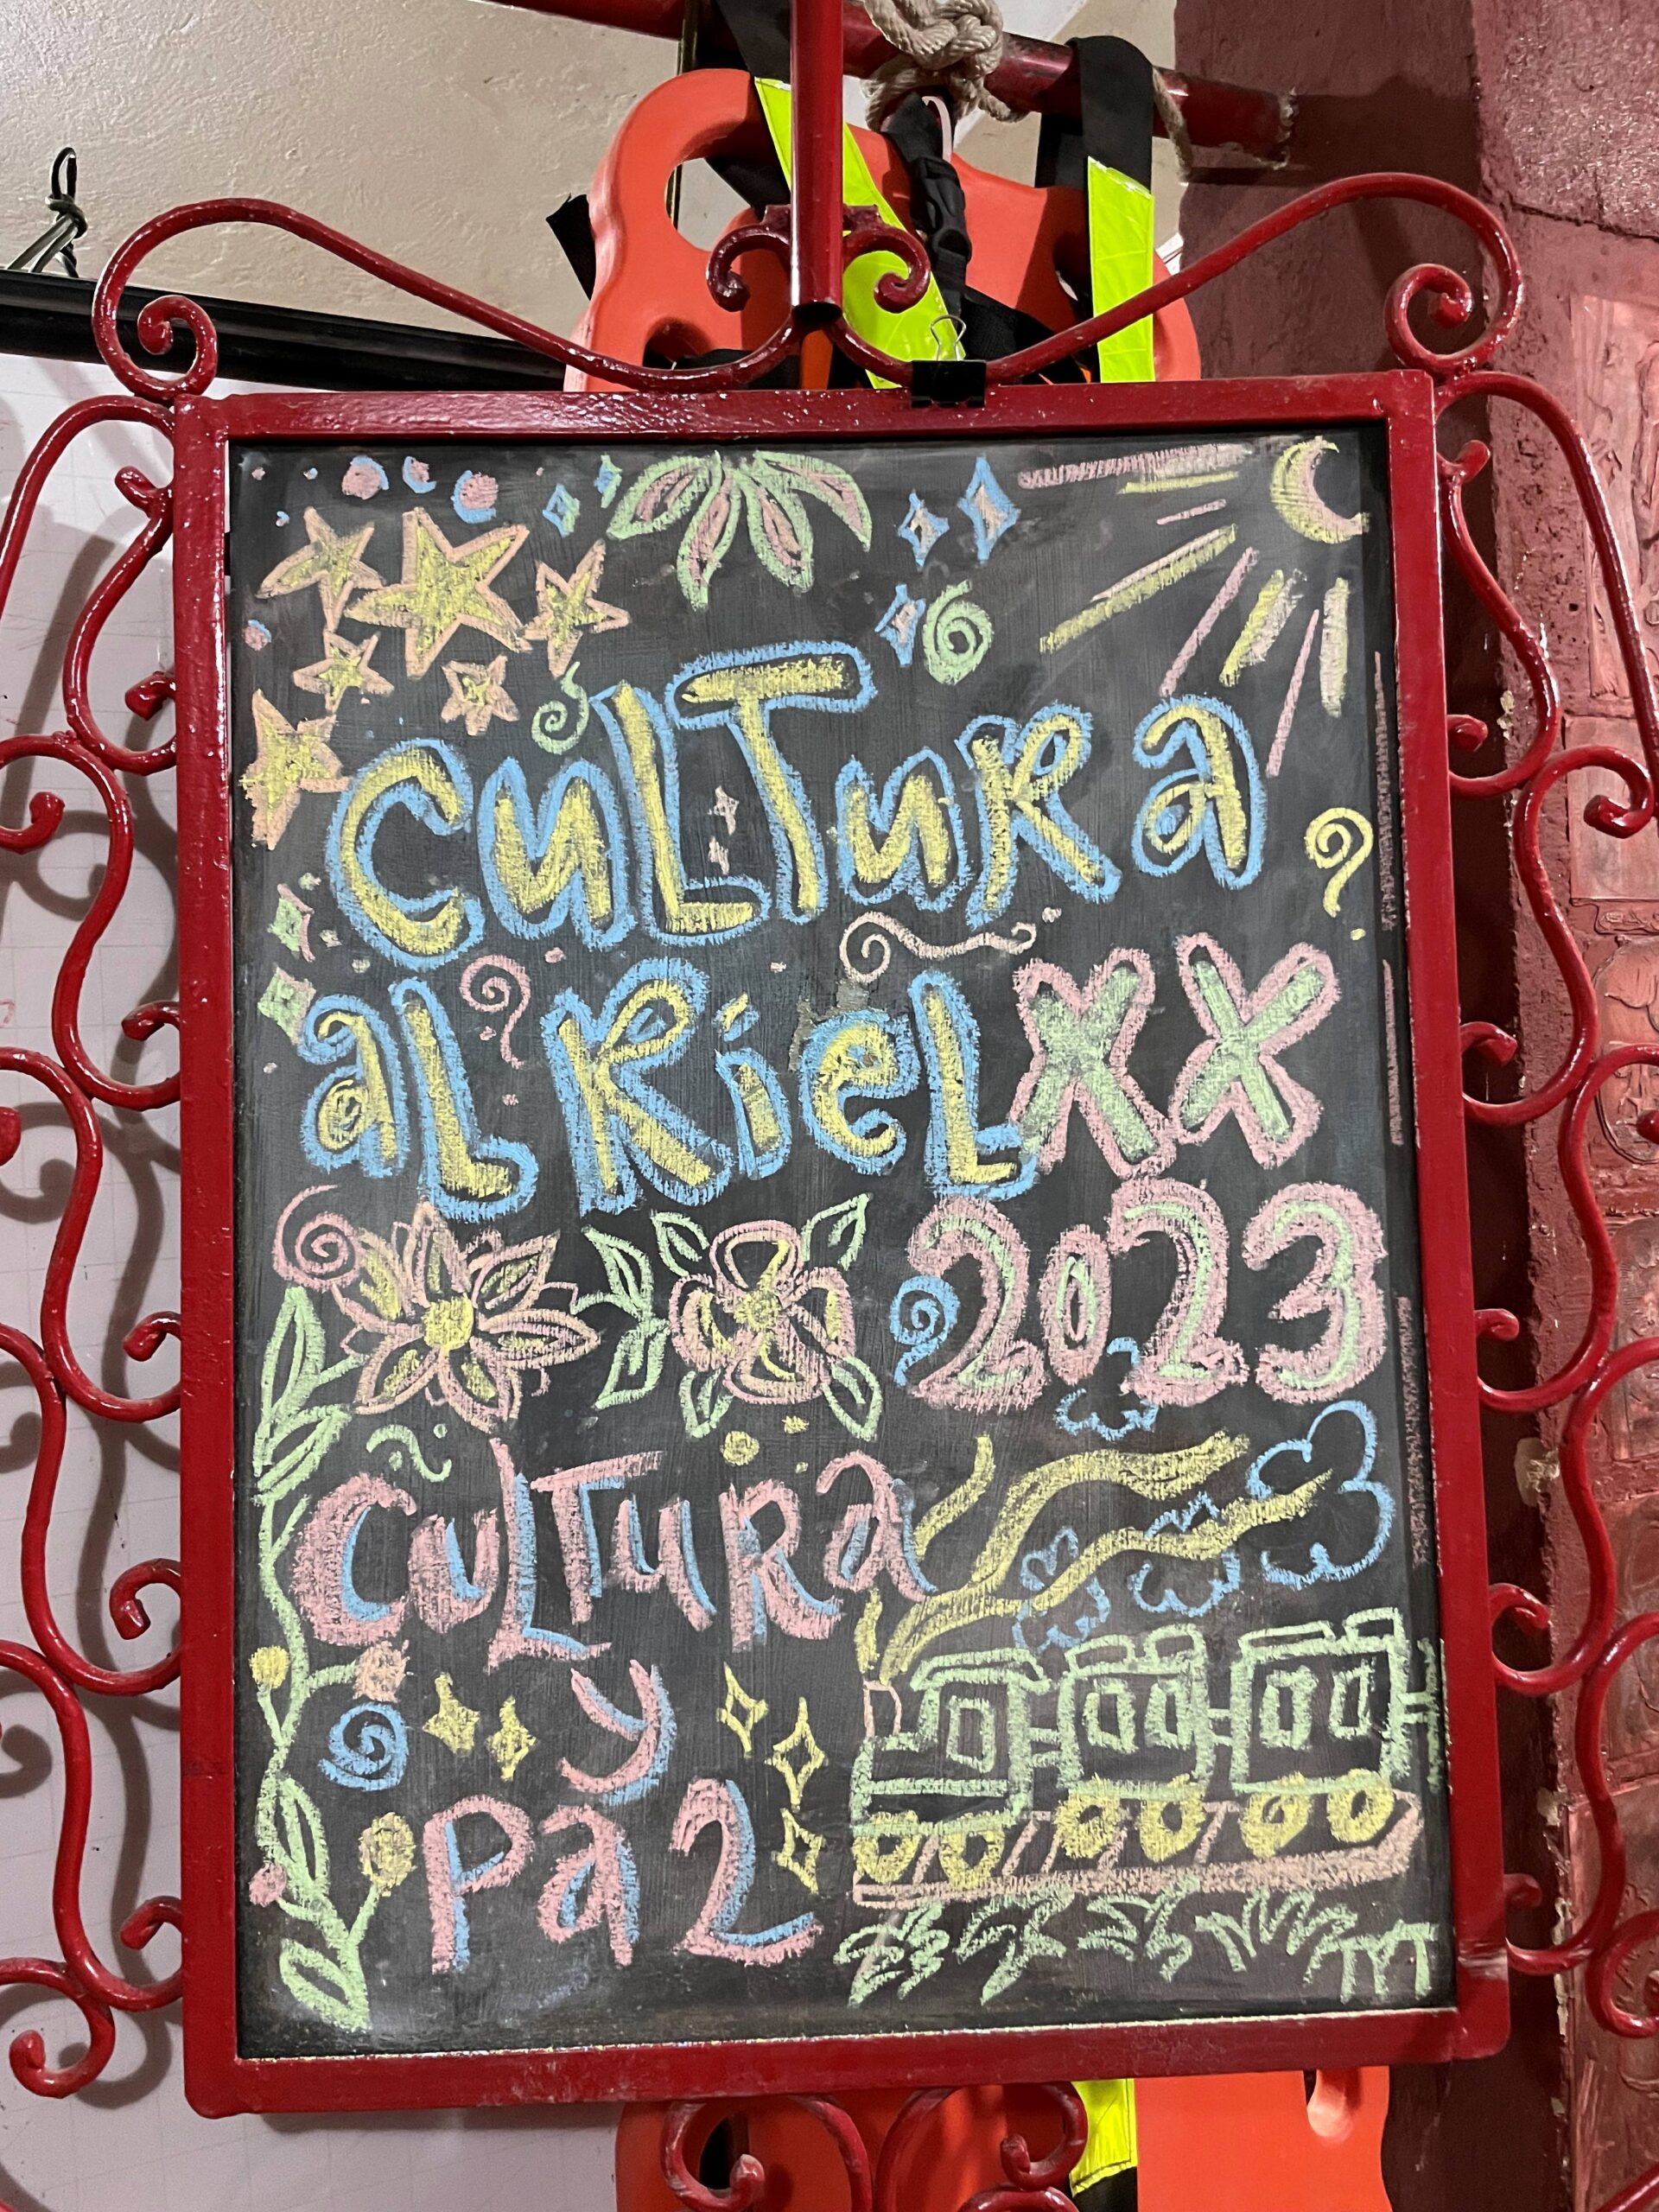 CuLTuRa
aL RieL XX
2023
CuLTuRa
y
Pa2
TYT